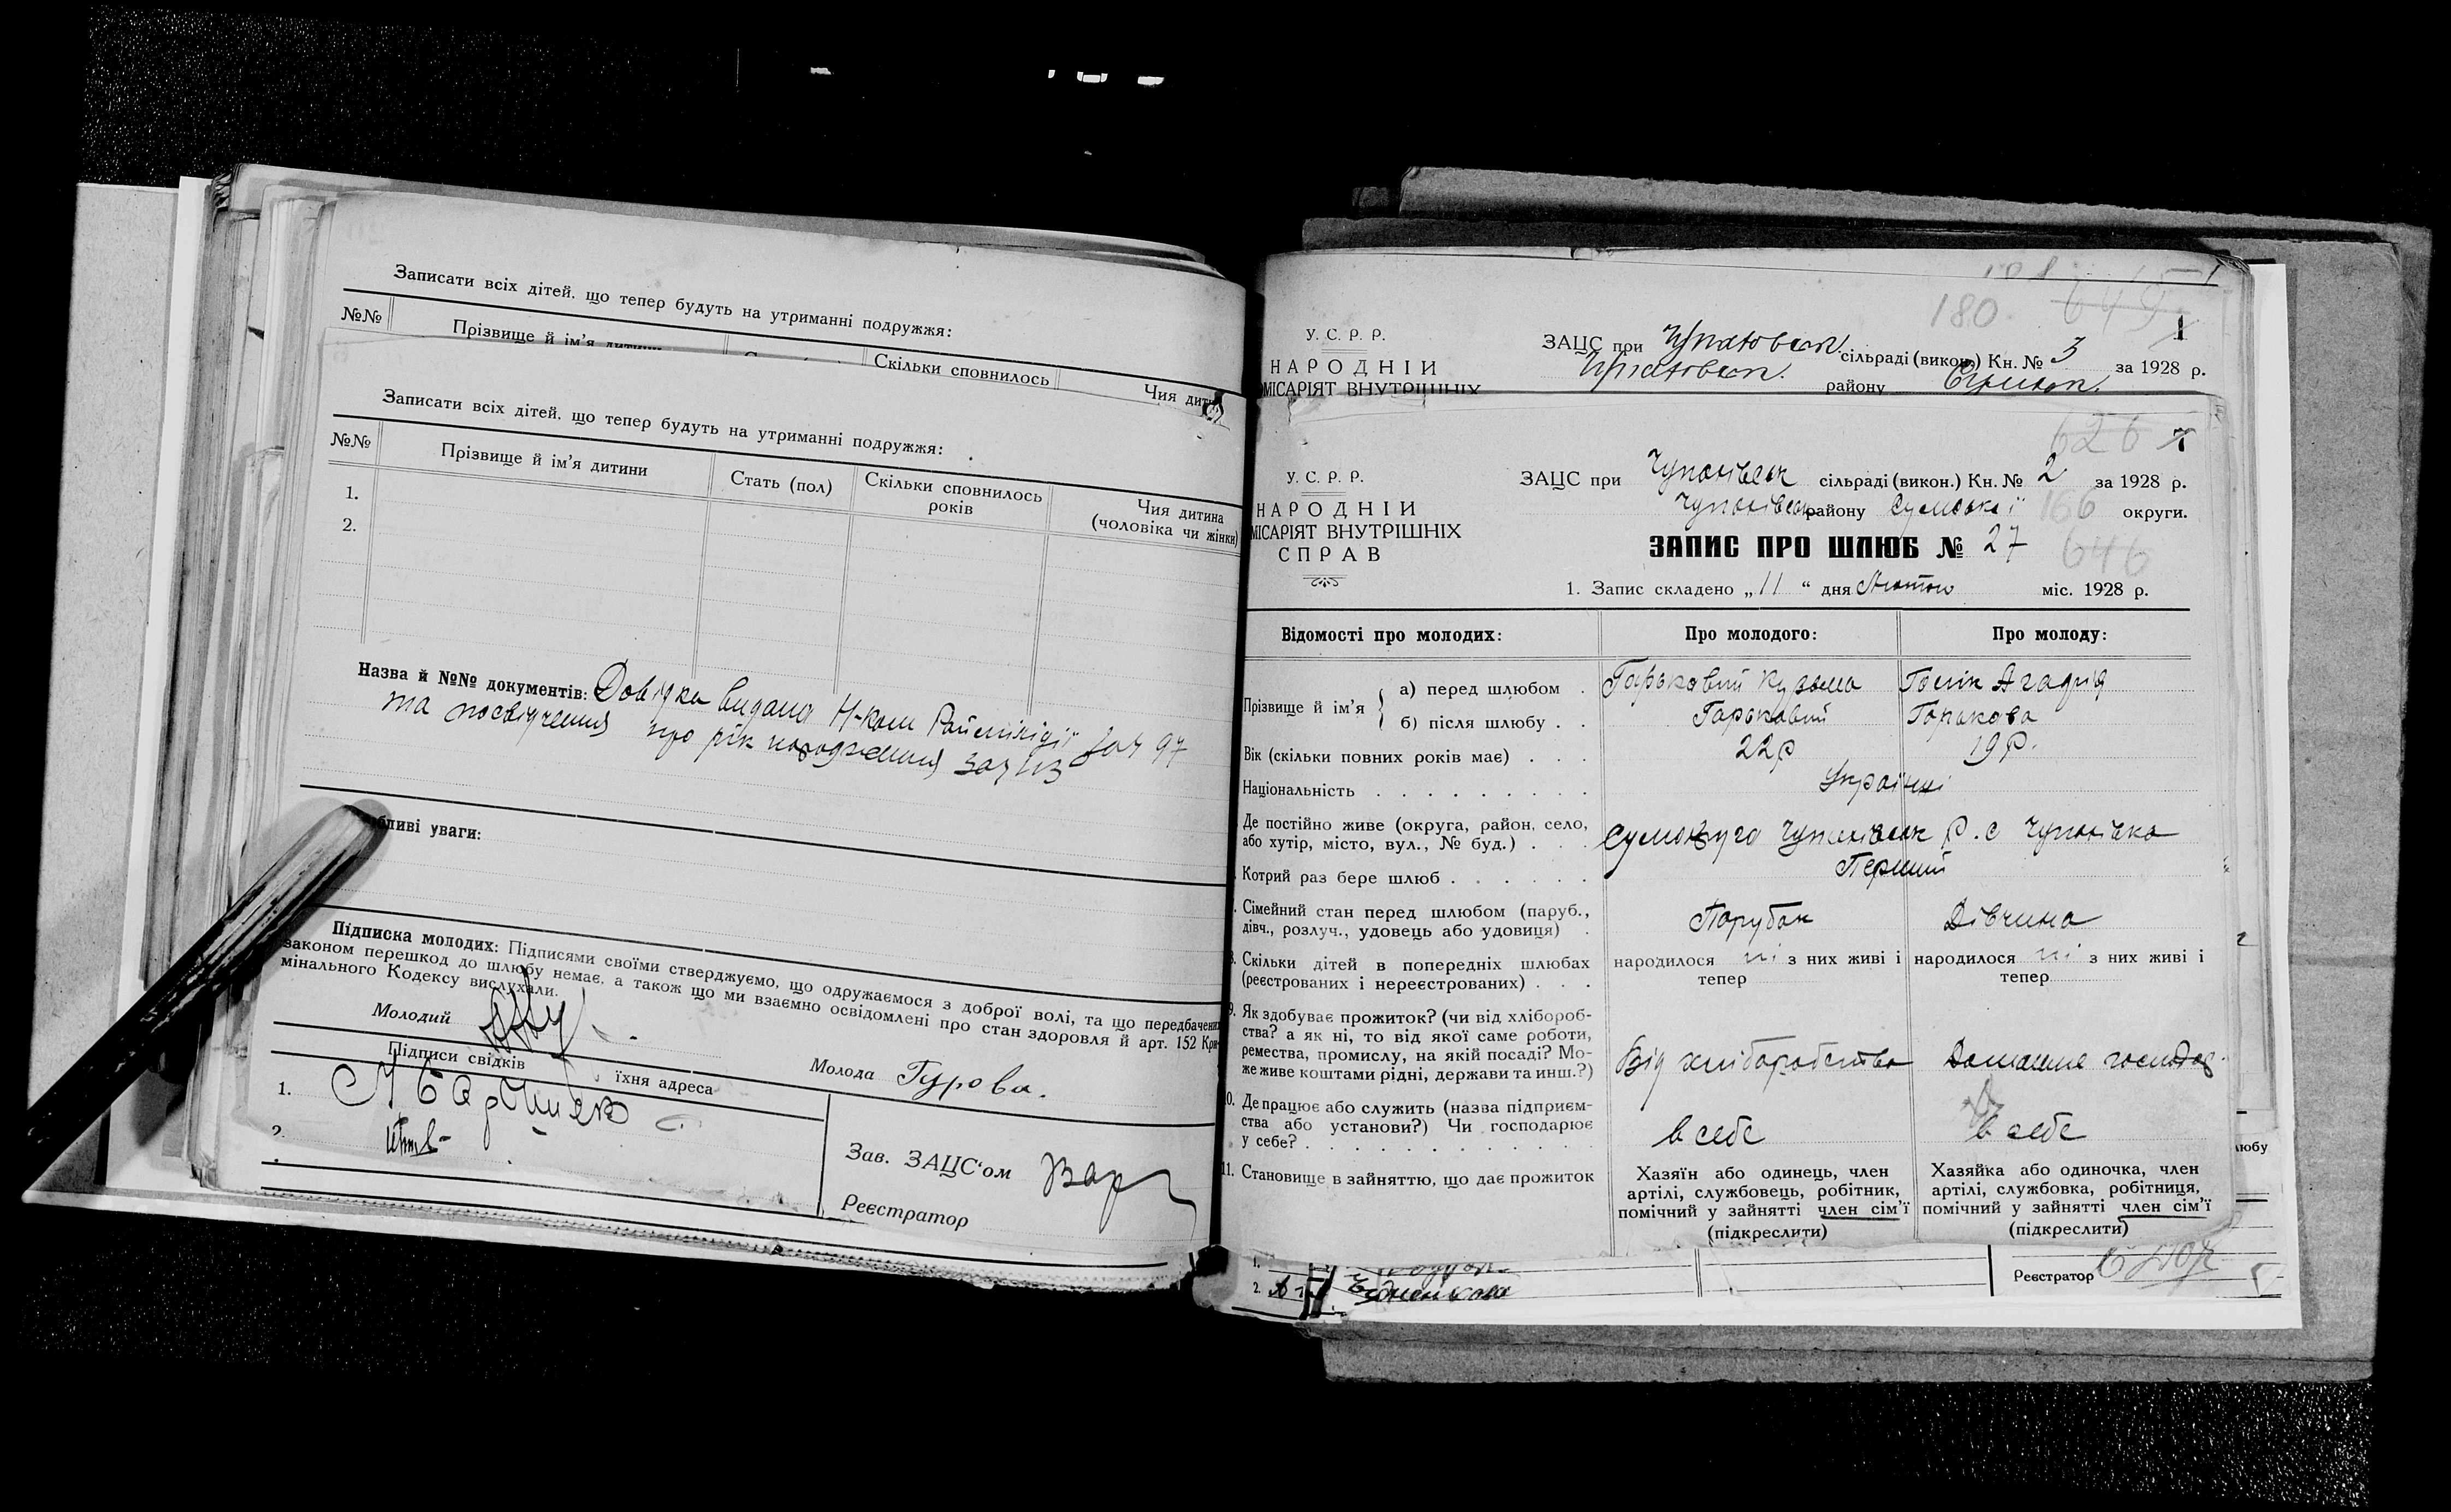 Записати всіх дітей, що тепер будуть на утриманні подружжя:
№№ Прізвище й ім'я дитини Скільки сповнилось Чия дитина
Записати всіх дітей, що тепер будуть на утриманні подружжя:
№№ Прізвище й ім'я дитини Стать (пол) Скільки сповнилось років Чия дитина (чоловіка чи жінки)
1.
2.
Назва й №№ документів: Довідка видана Н-ком Райміліції за ч 97
та посвідчення про рік народження за ч 113
бливі уваги:
Підписка молодих: Підписями своїми стверджуємо, що одружаємося з доброї волі, та що передбачених
законом перешкод до шлюбу немає, а також що ми взаємно освідомлені про стан здоровля й арт. 152 Кри-
мінального Кодексу вислухали.
Молодий
Молода Гурова.
Підписи свідків їхня адреса
1.
2.
Зав. ЗАЦС'ом
Реєстратор
180 649 1
У. С. Р. Р.
НАРОДНІЙ
МІСАРІЯТ ВНУТРІШНІХ
ЗАЦС при сільраді (викон.) Кн. № 3 за 1928 р.
району
626 7
У. С. Р. Р.
НАРОДНІЙ
МІСАРІЯТ ВНУТРІШНІХ
СПРАВ
ЗАЦС при Чупахівськ сільраді (викон.) Кн. № 2 за 1928 р.
Чупахівськ району Сумської 166 округи.
ЗАПИС ПРО ШЛЮБ № 27 646
1. Запис складено „11“ дня Лютого міс. 1928 р.
Відомості про молодих: Про молодого: Про молоду:
Прізвище й ім'я { а) перед шлюбом . Горьковий Кузьма
б) після шлюбу . . Горьковий Горькова
Вік (скільки повних років має) . . . 22р 19р.
Національність . . . . . . . . . Українці
Де постійно живе (округа, район, село,
або хутір, місто, вул., № буд.) . . . Чупахівськ р. с Чупахівка
Котрий раз бере шлюб . . . . . . Перший
Сімейний стан перед шлюбом (паруб.,
дівч., розлуч., удовець або удовиця) . Парубок Дівчина
8. Скільки дітей в попередніх шлюбах
(реєстрованих і нереєстрованих) . . . народилося ні з них живі і тепер народилося ні з них живі і тепер
9. Як здобуває прожиток? (чи від хлібороб-
ства? а як ні, то від якої саме роботи,
ремества, промислу, на якій посаді? Мо-
же живе коштами рідні, держави та инш.?) Від хліборобства Домашнє господар.
10. Де працює або служить (назва підприєм-
ства або установи?) Чи господарює
у себе? . . . . . . . . . . . . в себе в себе
11. Становище в зайняттю, що дає прожиток
Хазяїн або одинець, член
артілі, службовець, робітник,
помічний у зайнятті член сім'ї
(підкреслити)
Хазяйка або одиночка, член
артілі, службовка, робітниця,
помічний у зайнятті член сім'ї
(підкреслити)
любу
1.
2.
Реєстратор